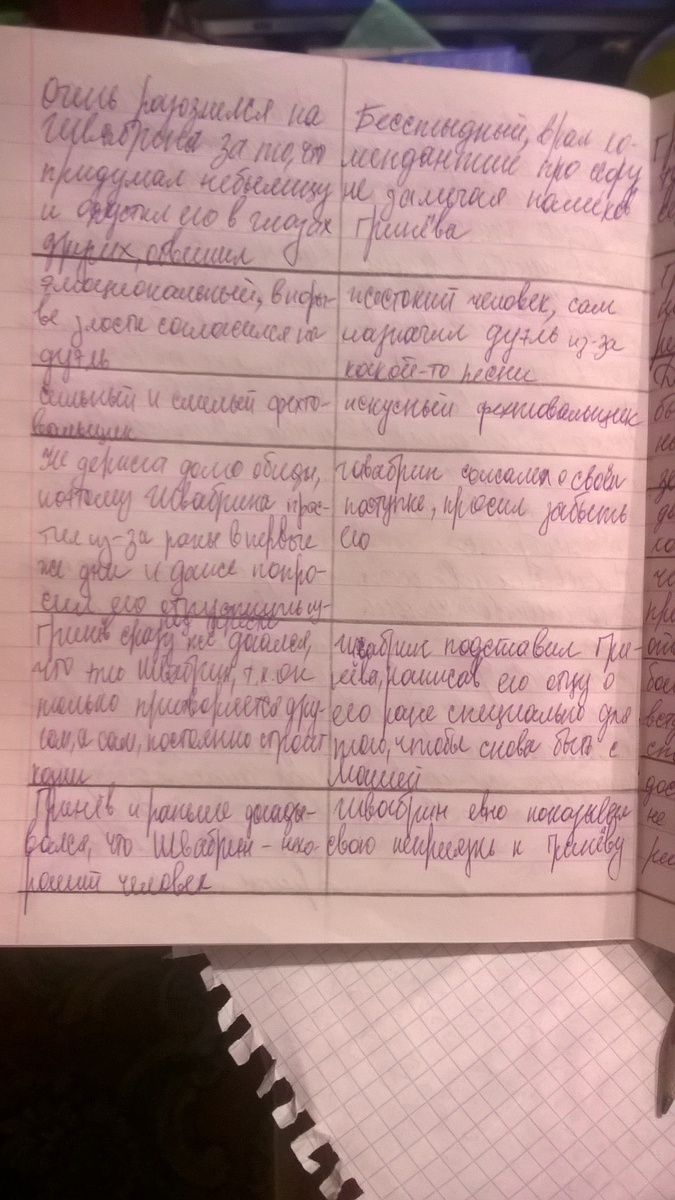 Очень разозлился на
Швабрина за то, что
придумал небылицу
и опустил его в глазах
других,
Бесстыдный, врал ко-
мендантше про ссору
не замечая намёков
Гринёва
эмоциональный, в поры-
ве злости согласился на
дуэль
жестокий человек, сам
назначил дуэль из-за
какой-то песни
сильный и смелый фехто-
вальщик
искусный фехтовальщик
Не держал долго обиды,
поэтому Швабрина прос-
тил из-за раны в первые
же дни и даже попро-
сил его отпустить из-
под
Швабрин сожалел о своём
поступке, просил забыть
его
Гринёв сразу же догался,
что это Швабрин, т.к он
только притворяется дру-
гом, а сам, постоянно строит
козни
Швабрин подставил Гри-
нёва, написав его отцу о
его ране специально для
того, чтобы снова быть с
Машей
Гринёв и раньше догады-
вался, что Швабрин - нехо-
роший человек
Швабрин явно показывал
свою неприязнь к Гринёву